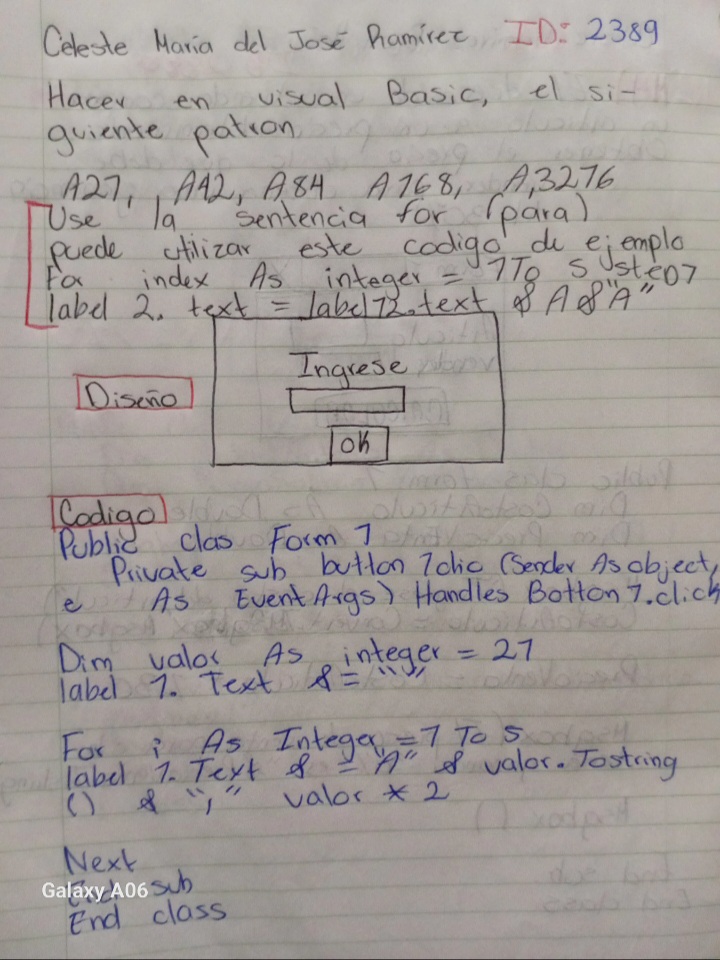 Celeste María del José Ramírez ID: 2389
Hacer en visual Basic, el si-
guiente patron
A27, A42, A84 A168, A,3276
Use la sentencia for (para)
puede utilizar este codigo de ejemplo
For index As integer = 1To 5 Step1
label 2. text = label12.text & A & "A"
Ingrese
Diseño
OK
Codigo
Public clas Form 1
Private sub button 1clic (Sender As object,
e As EventArgs) Handles Botton 1.click
Dim valor As integer = 21
label 1. Text & = ""
For i As Integer = 1 To 5
label 1. Text & = "A" & valor. Tostring
() & "," valor * 2
Next
End sub
End class
Galaxy A06